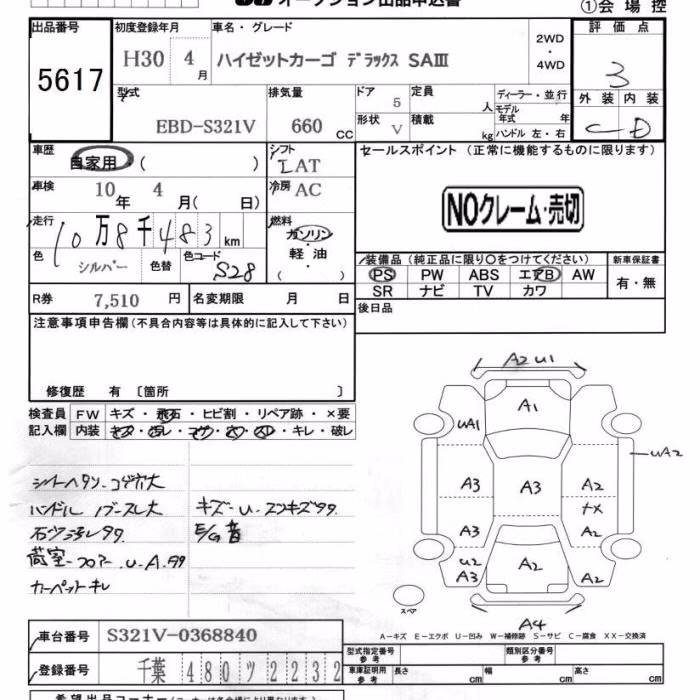 オークション出品申込書
①会場控
出品番号 初度登録年月 車名・グレード 評価点
5617 H30 4月 ハイゼットカーゴ デラックス SAIII 2WD・4WD 3
型式 排気量 ドア 定員 ディーラー・並行 外装 内装
EBD-S321V 660 CC 5 人 モデル年式 年 C D
形状 V 積載 kg ハンドル 左・右
車歴 自家用 ( ) シフト IAT セールスポイント (正常に機能するものに限ります)
車検 10年 4月( 日) 冷房 AC
NOクレーム・売切
走行 10万8千483km 燃料 ガソリン・軽油 ( )
色 シルバー 色替 色コード S28
装備品 (純正品に限り○をつけてください) 新車保証書
PS PW ABS エアB AW 有・無
SR ナビ TV カワ
R券 7,510円 名変期限 月 日 後日品
注意事項申告欄(不具合内容等は具体的に記入して下さい)
修復歴 有 〔箇所 〕
検査員 FW キズ・飛石・ヒビ割・リペア跡・×要
記入欄 内装 キズ・汚レ・コゲ・穴・スレ・キレ・破レ
ハンドル
キズ・U・
E/G音
カーペットキレ
A2 U1
A1
UA1
UA2
A3 A3 A2
tx
A3 A2
U2
A3 A2 A2
スペア
A4
A-キズ E-エクボ U-凹み W-補修跡 S-サビ C-腐食 XX-交換済
車台番号 S321V-0368840
登録番号 千葉 480 ツ 2232
型式指定番号 参考 類別区分番号 参考
車庫証明用 参考 長さ cm 幅 cm 高さ cm
希望出品コーナー